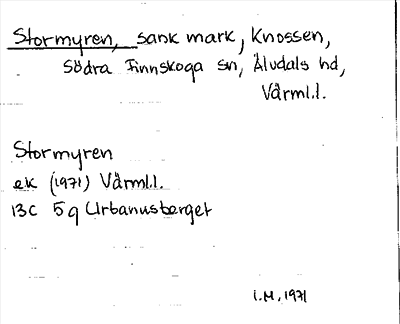 Stormyren, sank mark, Knossen,
Södra Finnskoga sn, Älvdals hd,
Värml.l.
Stormyren
ek (1971) Värml.l.
13C 5g Urbanusberget
I.M. 1971